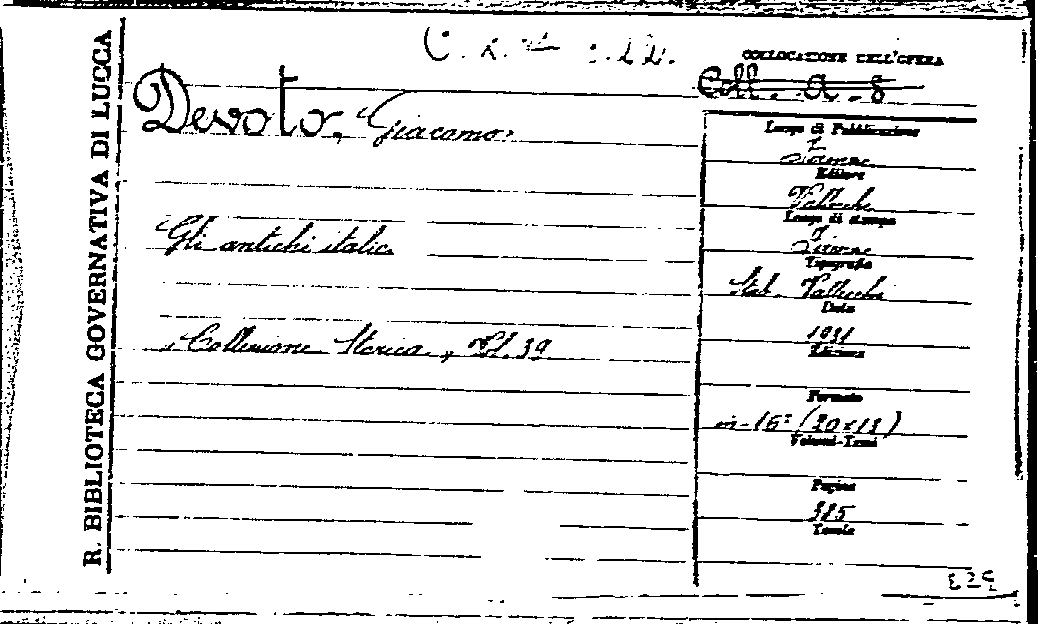 R. BIBLIOTECA GOVERNATIVA DI LUCCA
Devoto, Giacomo.
Gli antichi italici
Collezione Storica, Vol. 39
COLLOCAZIONE DELL'OPERA
Coll. A-8
Luogo di Pubblicazione
Firenze
Editore
Vallecchi
Luogo di stampa
Firenze
Tipografia
Stab. Vallecchi
Data
1931
Edizione
Formato
in-16º (20x13)
Volumi-Tomi
Pagine
385
Tavole